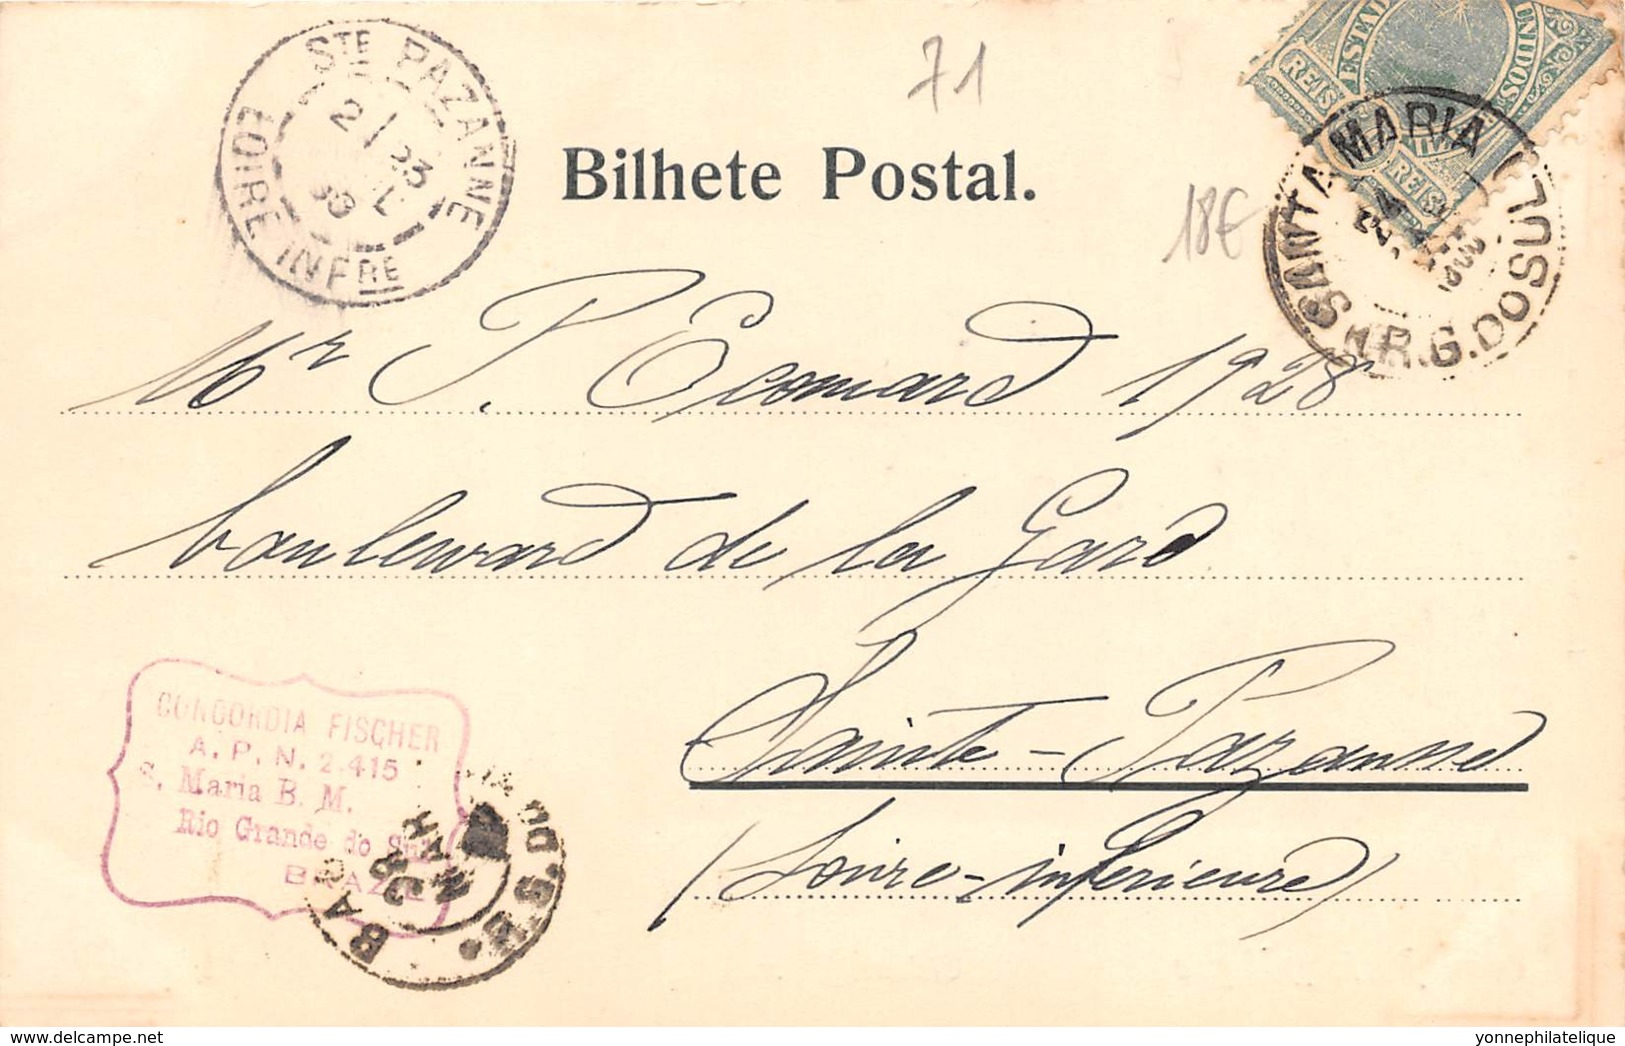 STE PAZANNE
LOIRE INFRE
71
REIS ESTAD UNIDOS
REIS
Bilhete Postal.
18€
SANTA MARIA
R.G. DO SUL
Mr P. Econard 1928
boulevard de la Gare
Sainte-Pazanne
(Loire-inférieure)
CONCORDIA FISCHER
A. P. N. 2.415
S. Maria B. M.
Rio Grande do Sul
BRAZIL
MAR
delcampe.net
yonnephilatelique